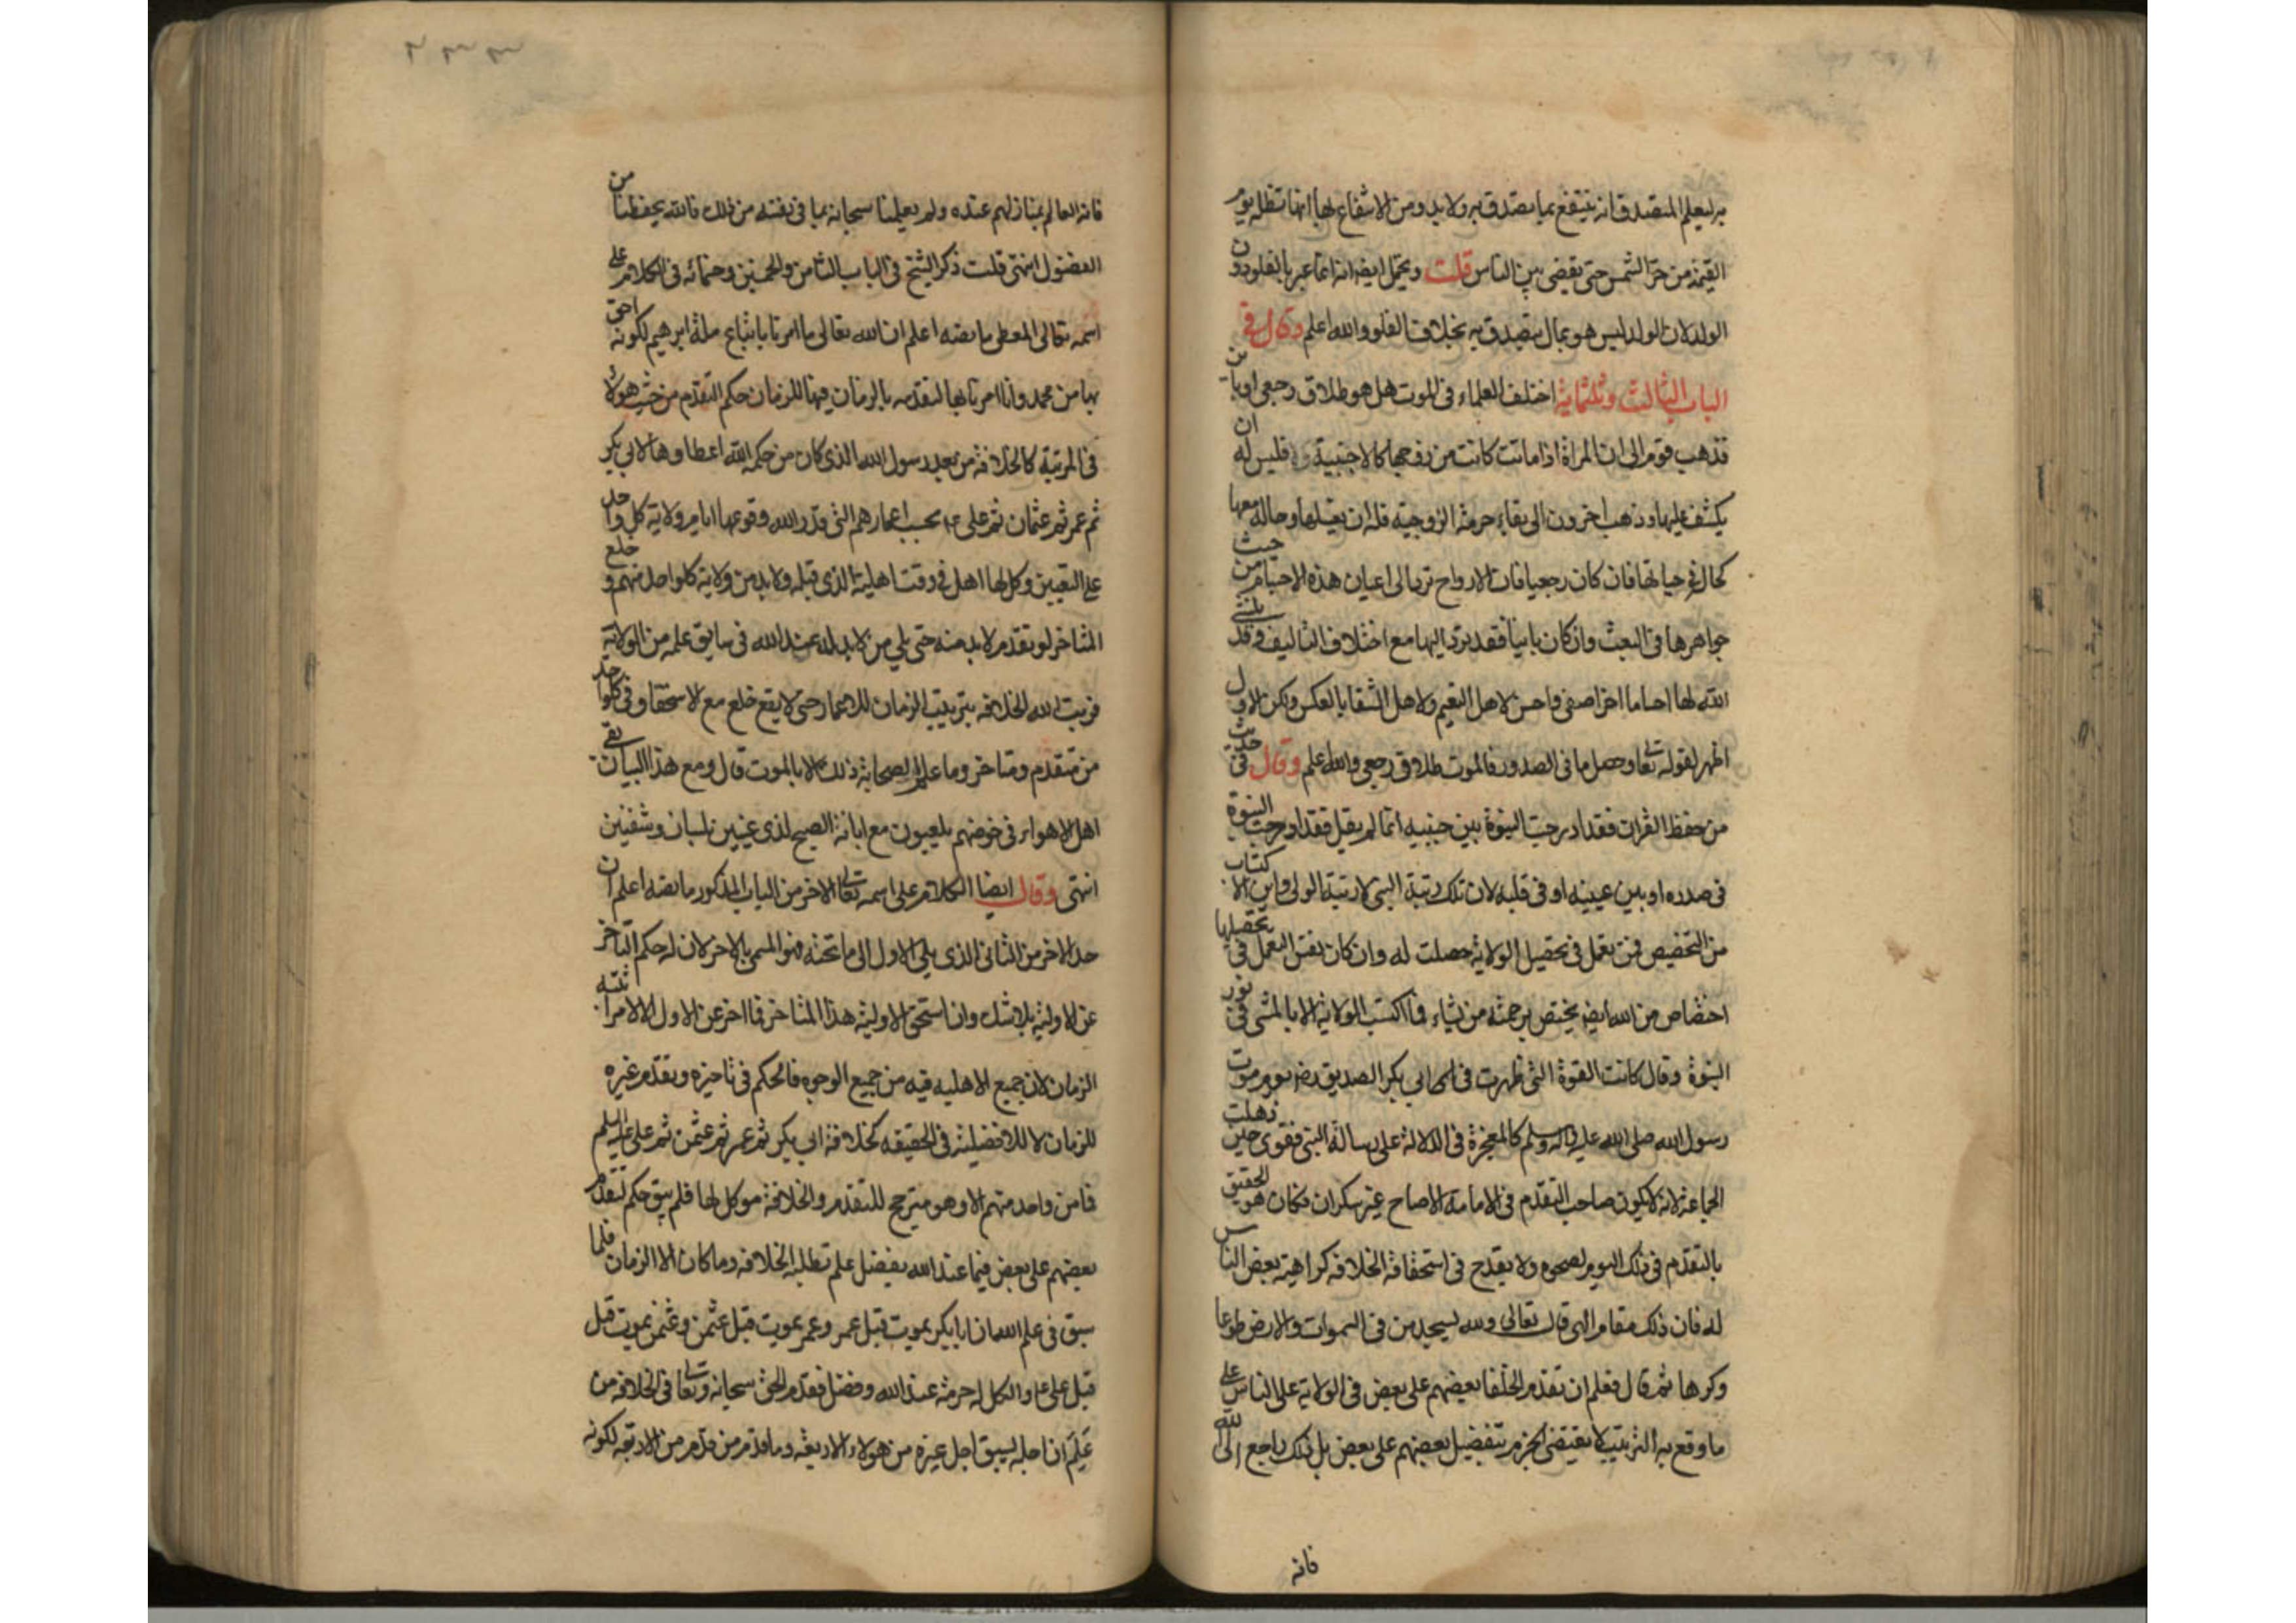 به ليعلم المتصدق انه ينتفع بما يتصدق به ولا بد ومن الانتفاع بها انها تظله يوم
القيمة من حر الشمس حتى يقضى بين الناس قلت ويحتمل ايضا انه انما عبر بالفلو دون
الولد لان الولد ليس هو بمال يتصدق به بخلاف الفلو والله اعلم وقال في
الباب الثالث وثلثمائة اختلف العلماء في الموت هل هو طلاق رجعي او باين
فذهب قوم الى ان المراة اذا ماتت كانت من زوجها كالاجنبية فليس له ان
يكشف عليها وذهب اخرون الى بقاء حرمة الزوجية فله ان يغسلها وحاله معها
كحاله في حياتها فان كان رجعيا فان الارواح ترد الى اعيان هذه الاجسام من حيث
جواهرها في البعث وان كان باينا فقد ترد اليها مع اختلاف التاليف وقد ينشئ
الله لها اجساما اخر اصفى واحسن لاهل النعيم ولاهل الشقا بالعكس ولكن الاول
اظهر لقوله تعا وحصل ما في الصدور فالموت طلاق رجعي والله اعلم وقال في حديث
من حفظ القران فقد ادرجت النبوة بين جنبيه انما لم يقل فقد ادرجت النبوة
في صدره او بين عينيه او في قلبه لان تلك رتبة النبي لا رتبة الولي واين الاكتساب
من التخصيص فمن تعمل في تحصيل الولاية حصلت له وان كان نفس التعمل في تحصيلها
اختصاص من الله ايضا يختص برحمته من يشاء فما اكتسب الولاية الا بالمشى في نور
النبوة وقال كانت القوة التي ظهرت في ابي بكر الصديق رضه يوم موت
رسول الله صلى الله عليه واله وسلم كالمعجزة في الدلالة على رسالة النبي فقوى حين ذهلت
الجماعة لانه لا يكون صاحب التقدم في الامامة الا صاح غير سكران فكان هو الحقيق
بالتقدم في ذلك اليوم لصحوه ولا يقدح في استحقاقه الخلافه كراهية بعض الناس
له فان ذلك مقام الهي قال تعالى ولله يسجد من في السموات والارض طوعا
وكرها ثم قال فعلم ان تقدم الخلفا بعضهم على بعض في الولاية على الناس على
ما وقع به الترتيب لا يقتضى الجزم بتفضيل بعضهم على بعض بل ذلك راجع الى الله
فانه
فانه العالم بمنازلهم عنده ولم يعلمنا سبحانه بما في نفسه من ذلك فالله يحفظنا من
الفضول انتهى قلت ذكر الشيخ في الباب الثامن والخمسين وخمسمائه في الكلام على
اسمه تعالى المعطى ما نصه اعلم ان الله تعالى ما امرنا باتباع ملة ابرهيم لكونه احق
بها من محمد وانما امرنا بها لتقدمه بالزمان فيها فللزمان حكم التقدم من حيث هو لا
في المرتبة كالخلافة من بعد رسول الله الذي كان من حكمة الله اعطاوها لابي بكر
ثم عمر ثم عثمان ثم على ع بحسب اعمارهم التي قدر الله وقوعها ايام ولاية كل واحد
على التعيين وكل لها اهل في وقت اهلية الذي قبله ولابد من ولاية كل واحد منهم وخلع
المتاخر لو تقدم لابد منه حتى يلى من لابد له عند الله في سابق علمه من الولاية
فرتب الله الخلافه بترتيب الزمان للاعمار حتى لا يقع خلع مع الاستحقاق في كل واحد
من متقدم ومتاخر وما علم الصحابة ذلك الا بالموت قال ومع هذا البيان بقى
اهل الاهواء في خوضهم يلعبون مع ابانة الصبح لذي عينين بلسان وشفتين
انتهى وقال ايضا الكلام على اسمه تعا الاخر من الباب المذكور ما نصه اعلم ان
حد الاخر من الثاني الذي يلى الاول الى ما تحته فهو المسمى بالاخر لان له حكم التاخر
عن الاولية بلا شك وان استحق الاولية هذا المتاخر فما اخر عن الاول الا لامر اثبته
الزمان لان جميع الاهلية فيه من جميع الوجوه فالحكم في تاخيره وتقدم غيره
للزمان لا للافضلية في الحقيقه كخلافة ابي بكر ثم عمر ثم عثمن ثم على عليه السلم
فما من واحد منهم الا وهو مترجح للتقدم والخلافة موكل لها فلم يبق حكم لتقدم
بعضهم على بعض فيما عند الله بفضل علم تطلبه الخلافه وما كان الا الزمان فلما
سبق في علم الله ان ابا بكر يموت قبل عمر وعمر يموت قبل عثمن وعثمن يموت قبل
قبل على ع والكل له حرمة عند الله وفضل فقدم الحق سبحانه وتعا في الخلافة من
علم ان اجله يسبق اجل غيره من هولاء الاربعه وما قدم من قدم من الاربعة لكونه